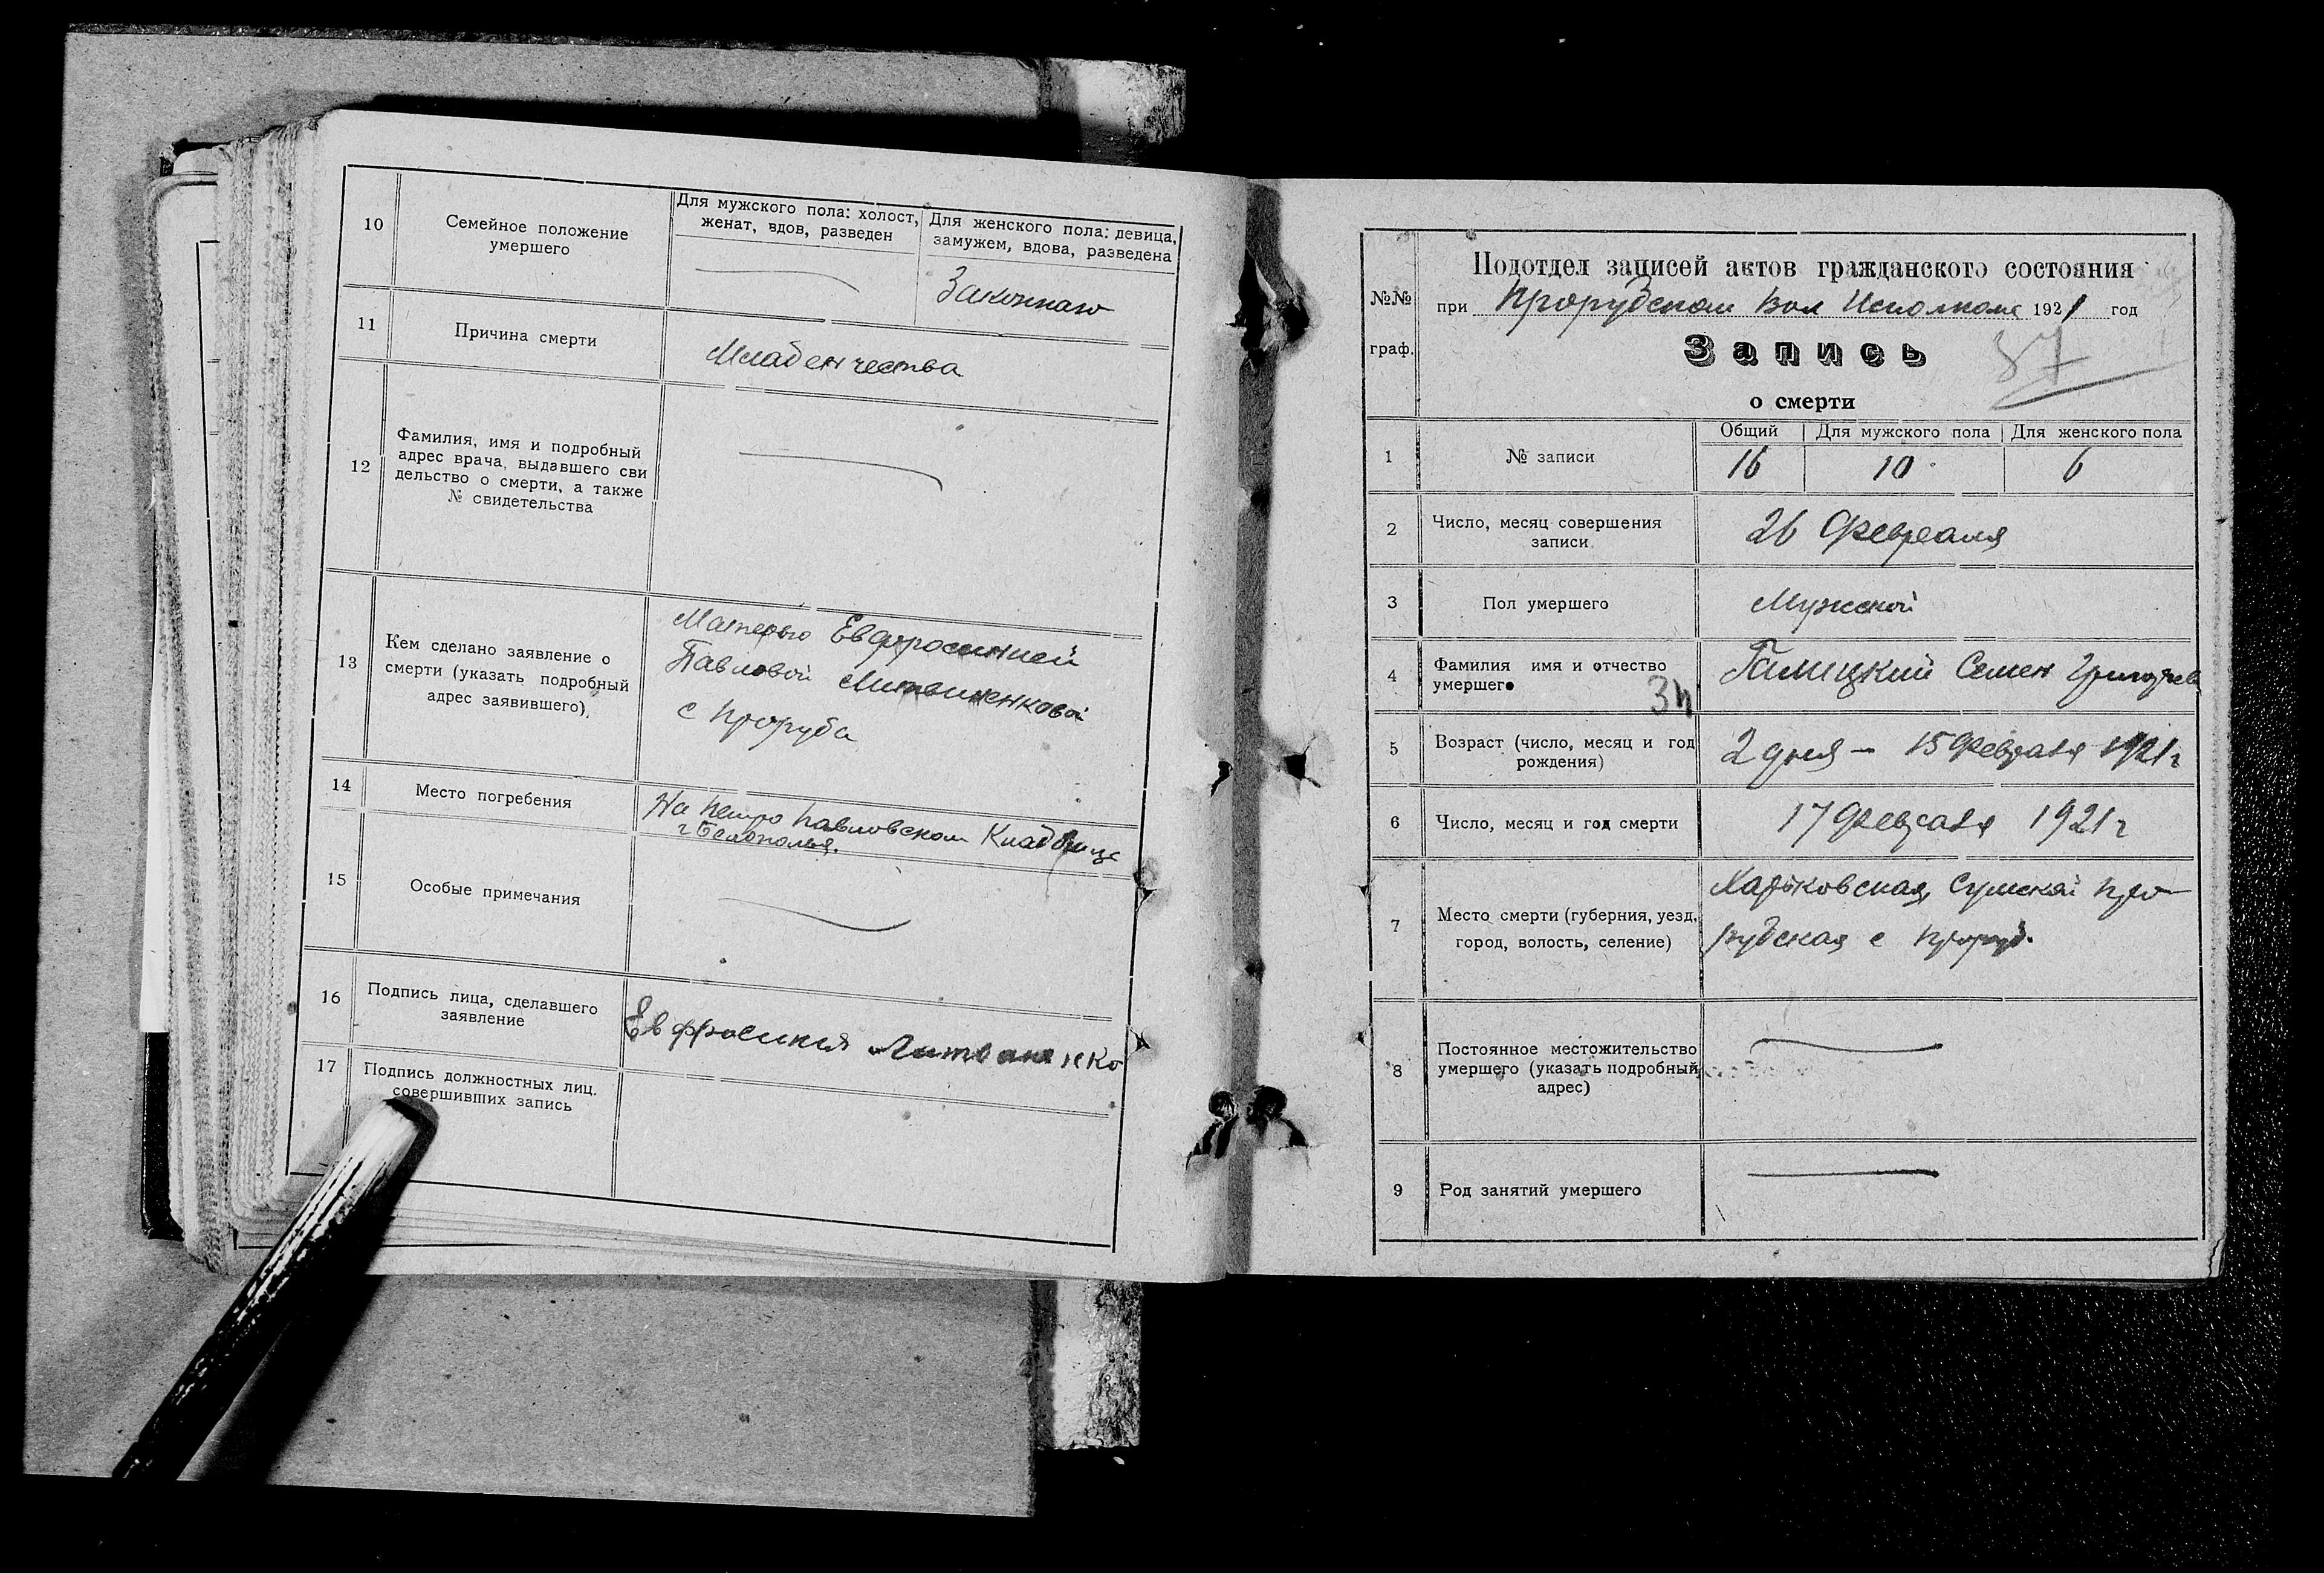 10
Семейное положение
умершего
Для мужского пола: холост,
женат, вдов, разведен
Для женского пола: девица,
замужем, вдова, разведена
Законнаго
11
Причина смерти
Младенчества
12
Фамилия, имя и подробный
адрес врача, выдавшего сви
дельство о смерти, а также
№ свидетельства
13
Кем сделано заявление о
смерти (указать подробный
адрес заявившего)
Матерью Евфросинией
Павловой Литвиненковой
с Проруба
14
Место погребения
На Петро Павловском Кладбище
г Белополья.
15
Особые примечания
16
Подпись лица, сделавшего
заявление
Евфросиния
17
Подпись должностных лиц.
совершивших запись
№№
граф.
Подотдел записей актов гражданского состояния
при Прорубском Вол Исполкоме 1921 год
Запись
37
о смерти
1
№ записи
Общий
Для мужского пола
Для женского пола
16
10
6
2
Число, месяц совершения
записи
26 Февраля
3
Пол умершего
Мужской
4
Фамилия имя и отчество
умершего
Галицкий Семен Григорьев
5
Возраст (число, месяц и год
рождения)
2 дня — 15 Февраля 1921 г
6
Число, месяц и год смерти
17 Февраля 1921 г
7
Место смерти (губерния, уезд,
город, волость, селение)
Харьковская, Сумской Про-
рубская с Проруб.
8
Постоянное местожительство
умершего (указать подробный
адрес)
9
Род занятий умершего